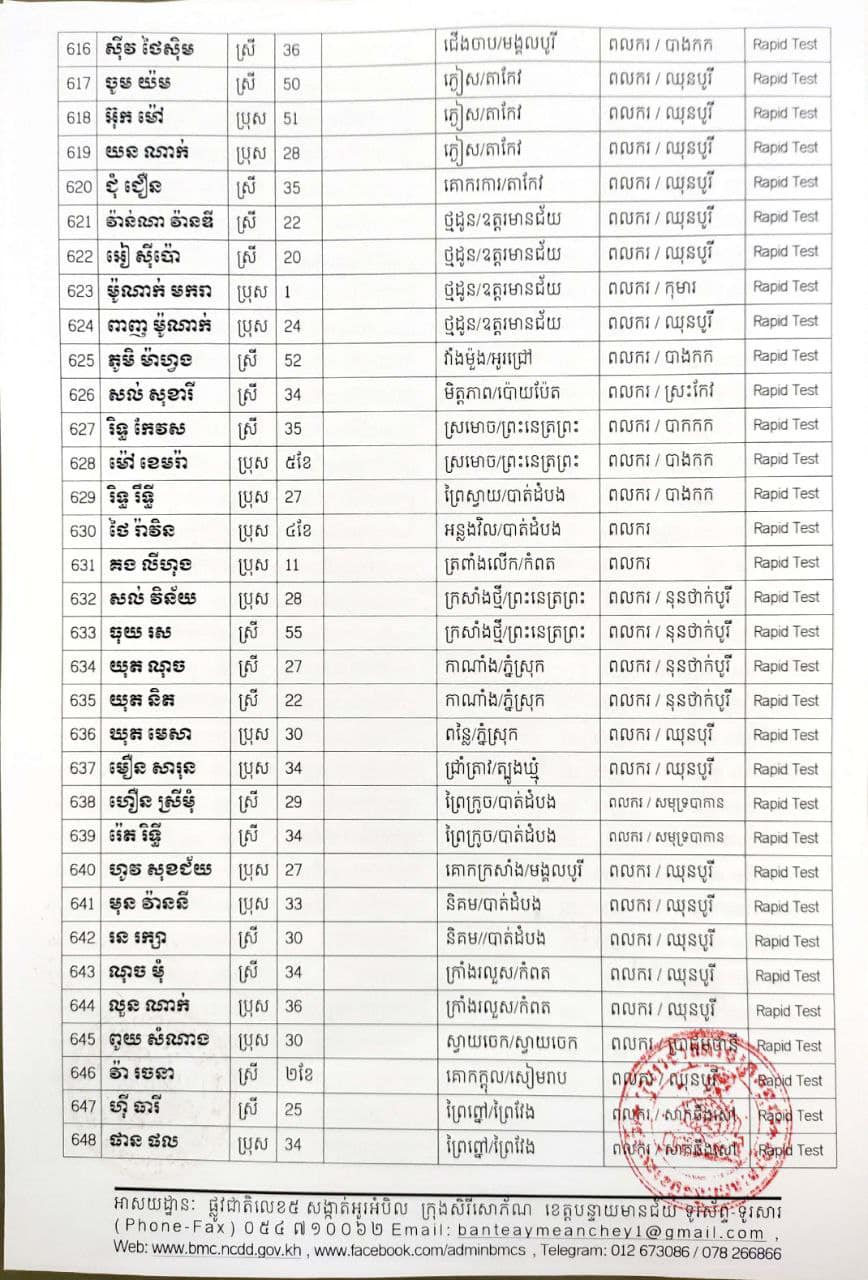 616 ស៊ីវ ថៃស៊ិម ស្រី 36 ជើងចាប/មង្គលបូរី ពលករ / បាងកក Rapid Test
617 ចូម យ៉ម ស្រី 50 ភ្ញៀស/តាកែវ ពលករ / ឈុនបូរី Rapid Test
618 អ៊ុក ម៉ៅ ប្រុស 51 ភ្ញៀស/តាកែវ ពលករ / ឈុនបូរី Rapid Test
619 យន ណាក់ ប្រុស 28 ភ្ញៀស/តាកែវ ពលករ / ឈុនបូរី Rapid Test
620 ជុំ ជឿន ស្រី 35 គោករការ/តាកែវ ពលករ / ឈុនបូរី Rapid Test
621 វ៉ាន់ណា វ៉ានឌី ស្រី 22 ថ្មដូន/ឧត្តរមានជ័យ ពលករ / ឈុនបូរី Rapid Test
622 អៀ ស៊ីប៉ោ ស្រី 20 ថ្មដូន/ឧត្តរមានជ័យ ពលករ / ឈុនបូរី Rapid Test
623 ម៉ូណាក់ មករា ប្រុស 1 ថ្មដូន/ឧត្តរមានជ័យ ពលករ / កុមារ Rapid Test
624 ពាញ ម៉ូណាក់ ប្រុស 24 ថ្មដូន/ឧត្តរមានជ័យ ពលករ / ឈុនបូរី Rapid Test
625 ភូមិ ម៉ាហ្វង ស្រី 52 វាំងម៉ួង/អូរជ្រៅ ពលករ / បាងកក Rapid Test
626 សល់ សុខារី ស្រី 34 មិត្តភាព/ប៉ោយប៉ែត ពលករ / ស្រះកែវ Rapid Test
627 រិទ្ធ កែវស ស្រី 35 ស្រមោច/ព្រះនេត្រព្រះ ពលករ / បាកកក Rapid Test
628 ម៉ៅ ខេមរ៉ា ប្រុស ៥ខែ ស្រមោច/ព្រះនេត្រព្រះ ពលករ / បាងកក Rapid Test
629 រិទ្ធ រឹទ្ធី ប្រុស 27 ព្រៃស្វាយ/បាត់ដំបង ពលករ / បាងកក Rapid Test
630 ថៃ រ៉ាវិន ប្រុស ៤ខែ អន្លងវិល/បាត់ដំបង ពលករ Rapid Test
631 គង លីហុង ប្រុស 11 ត្រពាំងលើក/កំពត ពលករ Rapid Test
632 សល់ វិន័យ ប្រុស 28 ក្រសាំងថ្មី/ព្រះនេត្រព្រះ ពលករ / នុនថាក់បូរី Rapid Test
633 ធុយ រស ស្រី 55 ក្រសាំងថ្មី/ព្រះនេត្រព្រះ ពលករ / នុនថាក់បូរី Rapid Test
634 យុត ណុច ស្រី 27 កាណាំង/ភ្នំស្រុក ពលករ / នុនថាក់បូរី Rapid Test
635 យុត និត ស្រី 22 កាណាំង/ភ្នំស្រុក ពលករ / នុនថាក់បូរី Rapid Test
636 ឃុត មេសា ប្រុស 30 ពន្លៃ/ភ្នំស្រុក ពលករ / ឈុនបុរី Rapid Test
637 មឿន សារុន ប្រុស 34 ជ្រាំត្រាវ/ត្បូងឃ្មុំ ពលករ / ឈុនបូរី Rapid Test
638 ហឿន ស្រីមុំ ស្រី 29 ព្រៃក្រូច/បាត់ដំបង ពលករ / សមុទ្របាកាន Rapid Test
639 រ៉េត រិទ្ធី ស្រី 34 ព្រៃក្រូច/បាត់ដំបង ពលករ / សមុទ្របាកាន Rapid Test
640 ហូវ សុខជ័យ ប្រុស 27 គោកក្រសាំង/មង្គលបូរី ពលករ / ឈុនបូរី Rapid Test
641 មុន វ៉ាននី ប្រុស 33 និគម/បាត់ដំបង ពលករ / ឈុនបូរី Rapid Test
642 រន រក្សា ស្រី 30 និគម//បាត់ដំបង ពលករ / ឈុនបូរី Rapid Test
643 ណុច មុំ ស្រី 34 ក្រាំងរលួស/កំពត ពលករ / ឈុនបូរី Rapid Test
644 លួន ណាក់ ប្រុស 36 ក្រាំងរលួស/កំពត ពលករ / ឈុនបូរី Rapid Test
645 ពូយ សំណាង ប្រុស 30 ស្វាយចេក/ស្វាយចេក ពលករ / Rapid Test
646 វ៉ា រចនា ស្រី ២ខែ គោកក្តុល/សៀមរាប ពលករ / ឈុនបូរី Rapid Test
647 ហ៊ី ធារី ស្រី 25 ព្រៃព្នៅ/ព្រៃវែង ពលករ / Rapid Test
648 ផាន ផល ប្រុស 34 ព្រៃព្នៅ/ព្រៃវែង ពលករ / Rapid Test
អាសយដ្ឋាន: ផ្លូវជាតិលេខ៥ សង្កាត់អូរអំបិល ក្រុងសិរីសោភ័ណ ខេត្តបន្ទាយមានជ័យ ទូរស័ព្ទ-ទូរសារ
(Phone-Fax) ០៥៤ ៧១០០៦២ Email: banteaymeanchey1@gmail.com ,
Web: www.bmc.ncdd.gov.kh , www.facebook.com/adminbmcs , Telegram: 012 673086 / 078 266866